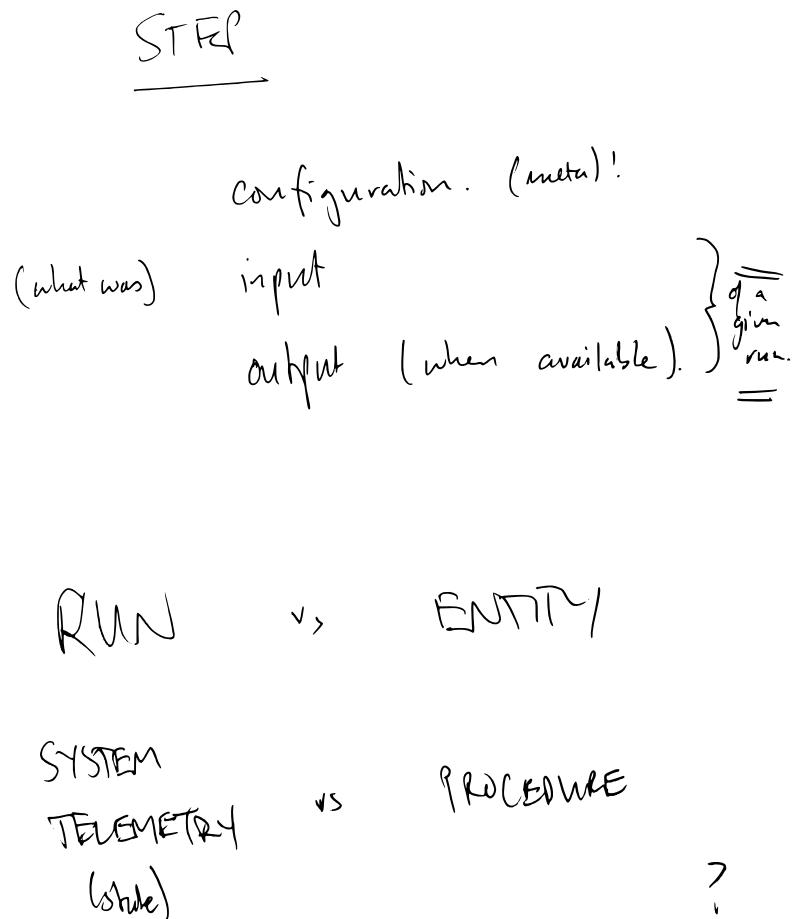 STEP
configuration. (meta)!
(what was) input
output (when available).
of a
given
run.
RUN vs ENTITY
SYSTEM
TELEMETRY vs PROCEDURE
(state)
?